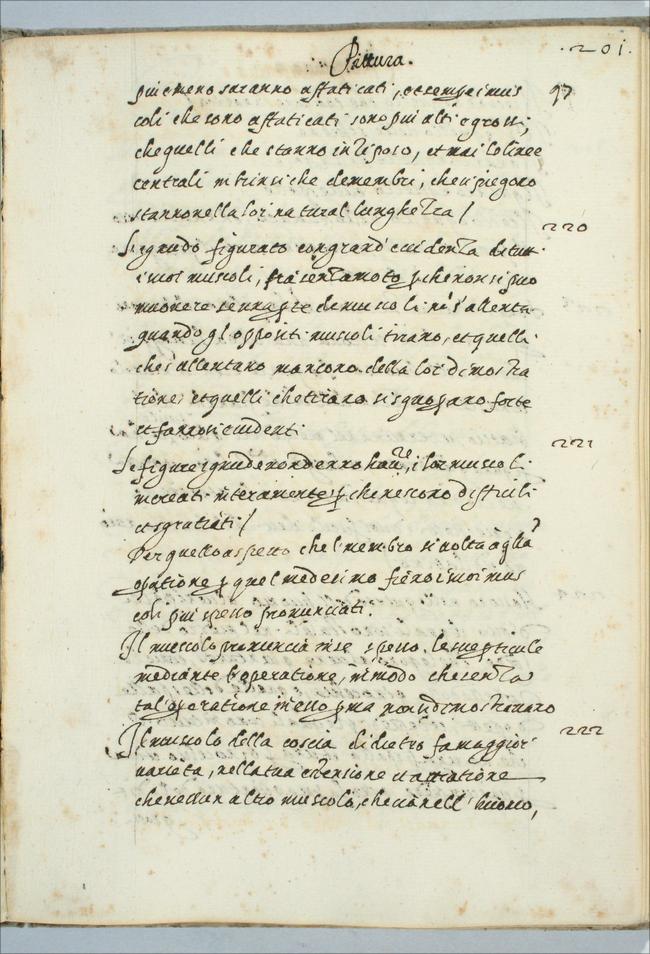 Pittura.
.201.
piu e meno saranno affaticati, et sempre i mus
97
coli che sono affaticati sono piu alti e grossi,
che quelli che stanno in riposo, et mai le linee
centrali intrinsiche de membri, che si piegono
stanno nella lor natural lunghezza /
220
Lignudo figurato con grand' euidenza di tutti
i suoi muscoli, fia senza moto, perche non si puo
muouere se una parte de muscoli nō s'allenta
quando gl'oppositi muscoli tirano, et quelli
che s'allentano mancono della lor dimostra
tione, et quelli che tirano si scuoprano forte
et fannosi euidenti
221
Le figure ignude non denno hauere i lor muscoli
ricreati interamente, perche riescono difficili
et sgratiati /
Per quello aspetto che 'l membro si uolta alla
operatione per quel medesimo fieno i suoi mus
coli piu spesso pronunciati.
Il muscolo pronuncia in se spesso le sue particule
mediante l'operatione, in modo che senza
tal'operatione in esso prima non si dimostrauano
222
Il muscolo della coscia di dietro fa maggior
uarieta, nella sua estensione et atratione
che nessun altro muscolo, che sia nell' huomo,